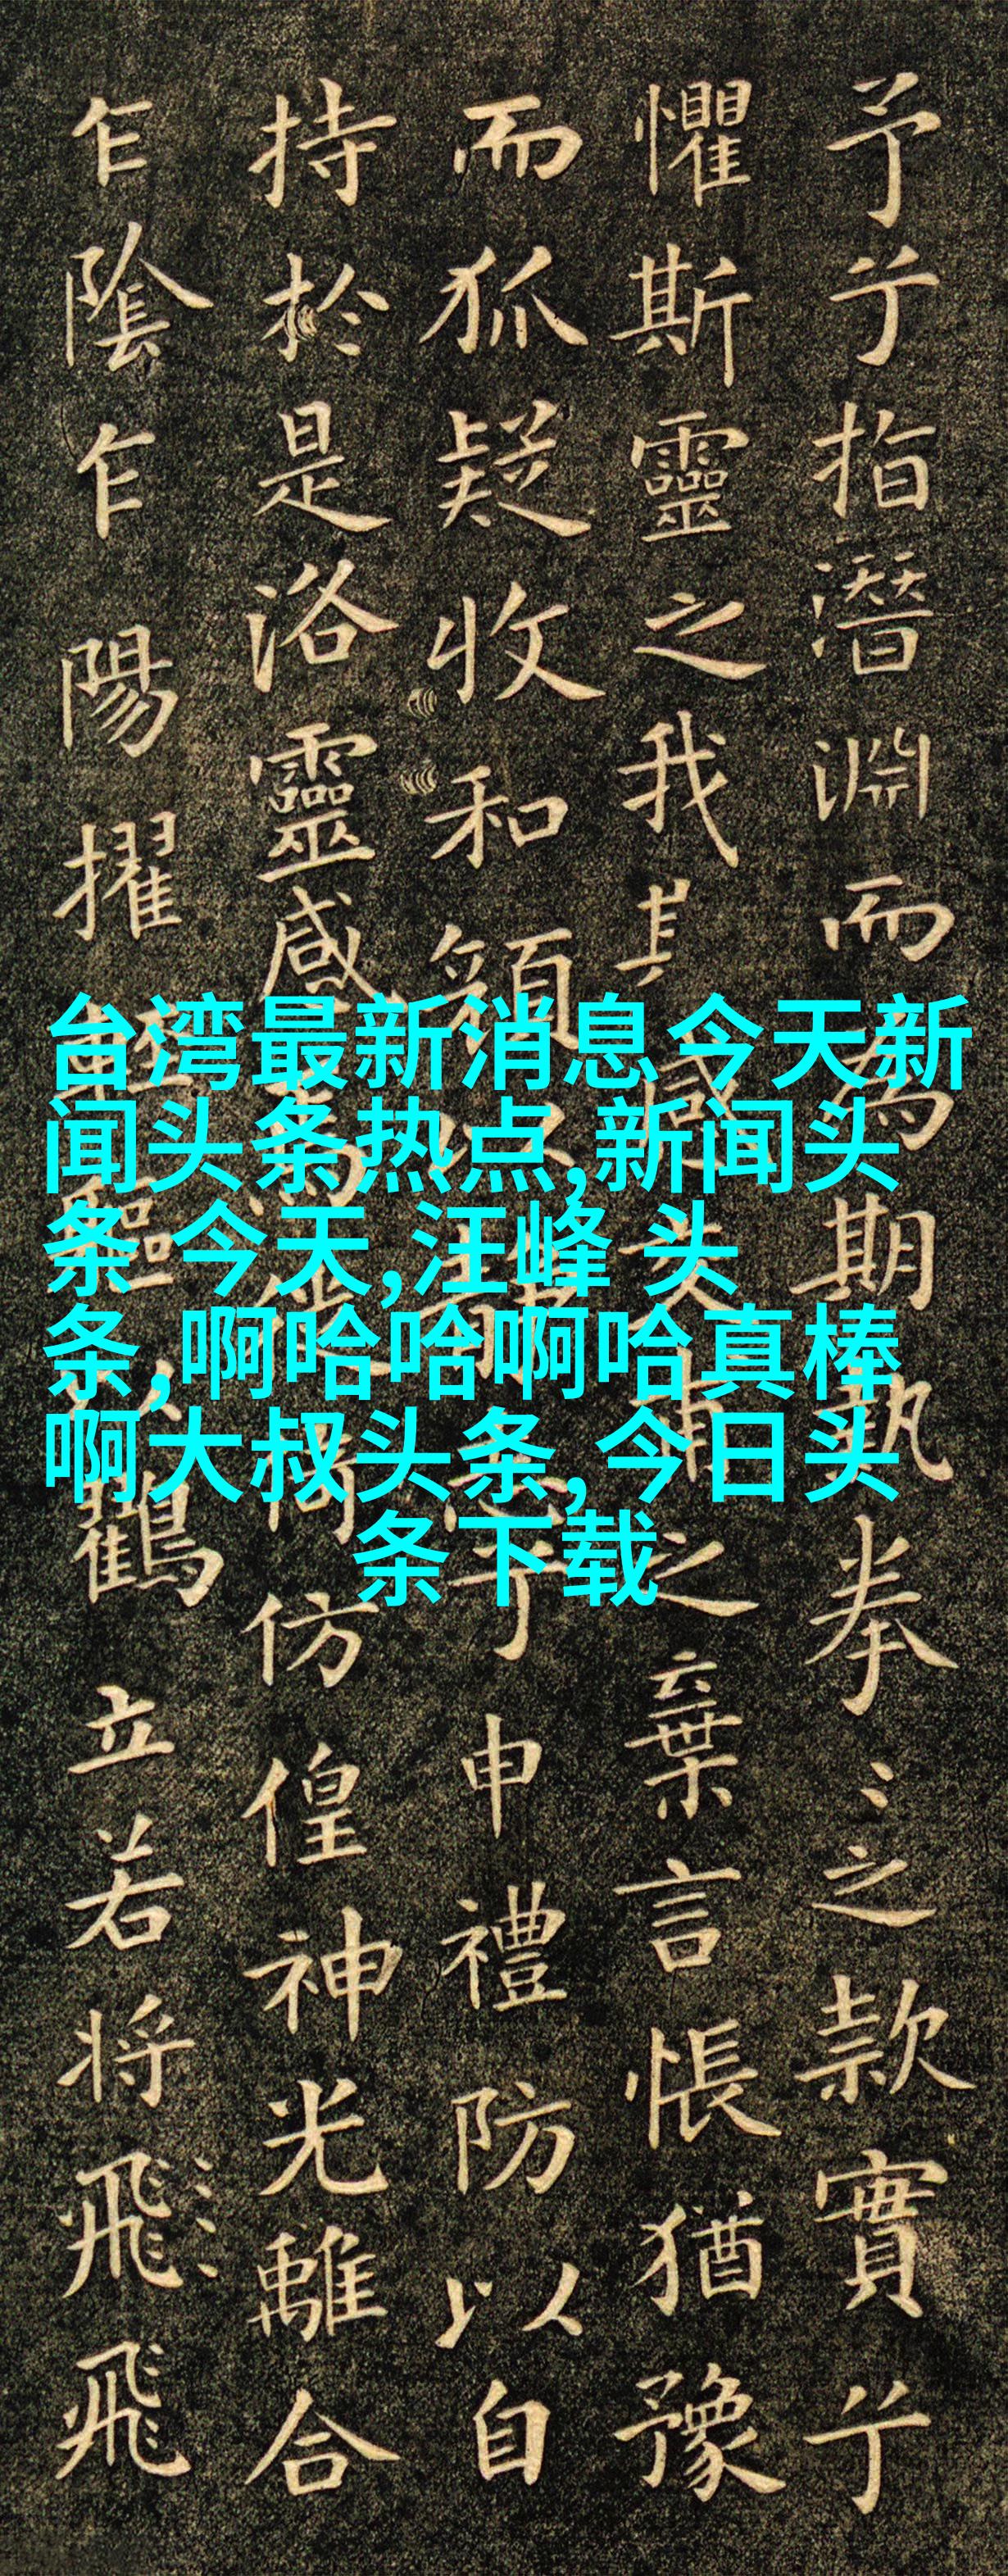 予兮指潛淵而為期執拳〻之款實兮
懼斯靈之我感交甫之棄言悵猶豫
而狐疑收和顏志兮申禮防以自
持於是洛靈感焉徙倚仿偟神光離合
乍陰乍陽擢輕軀以鶴立若將飛飛
台湾最新消息今天新
闻头条热点,新闻头
条 今天,汪峰 头
条,啊哈哈啊哈真棒
啊大叔头条,今日头
条下载